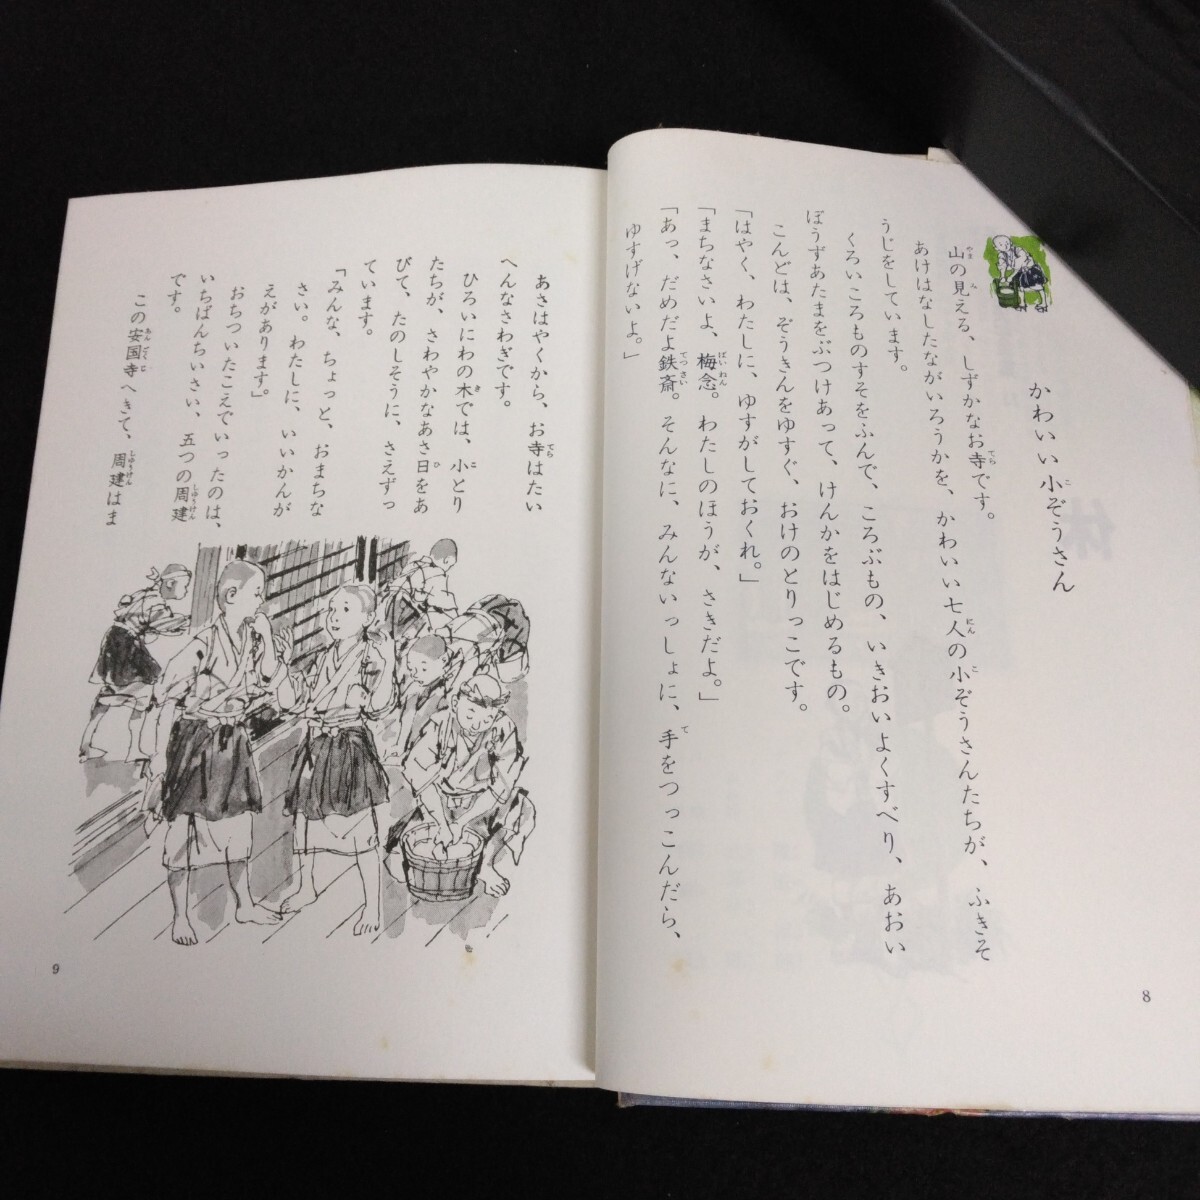 かわいい小ぞうさん
山の見える、しずかなお寺です。
あけはなしたながいろうかを、かわいい七人の小ぞうさんたちが、ふきそ
うじをしています。
くろいころものすそをふんで、ころぶもの、いきおいよくすべり、あおい
ぼうずあたまをぶつけあって、けんかをはじめるもの。
こんどは、ぞうきんをゆすぐ、おけのとりっこです。
「はやく、わたしに、ゆすがしておくれ。」
「まちなさいよ、梅念。わたしのほうが、さきだよ。」
「あっ、だめだよ鉄斎。そんなに、みんないっしょに、手をつっこんだら、
ゆすげないよ。」
8
あさはやくから、お寺はたい
へんなさわぎです。
ひろいにわの木では、小とり
たちが、さわやかなあさ日をあ
びて、たのしそうに、さえずっ
ています。
「みんな、ちょっと、おまちな
さい。わたしに、いいかんが
えがあります。」
おちついたこえでいったのは、
いちばんちいさい、五つの周建
です。
この安国寺へきて、周建はま
9